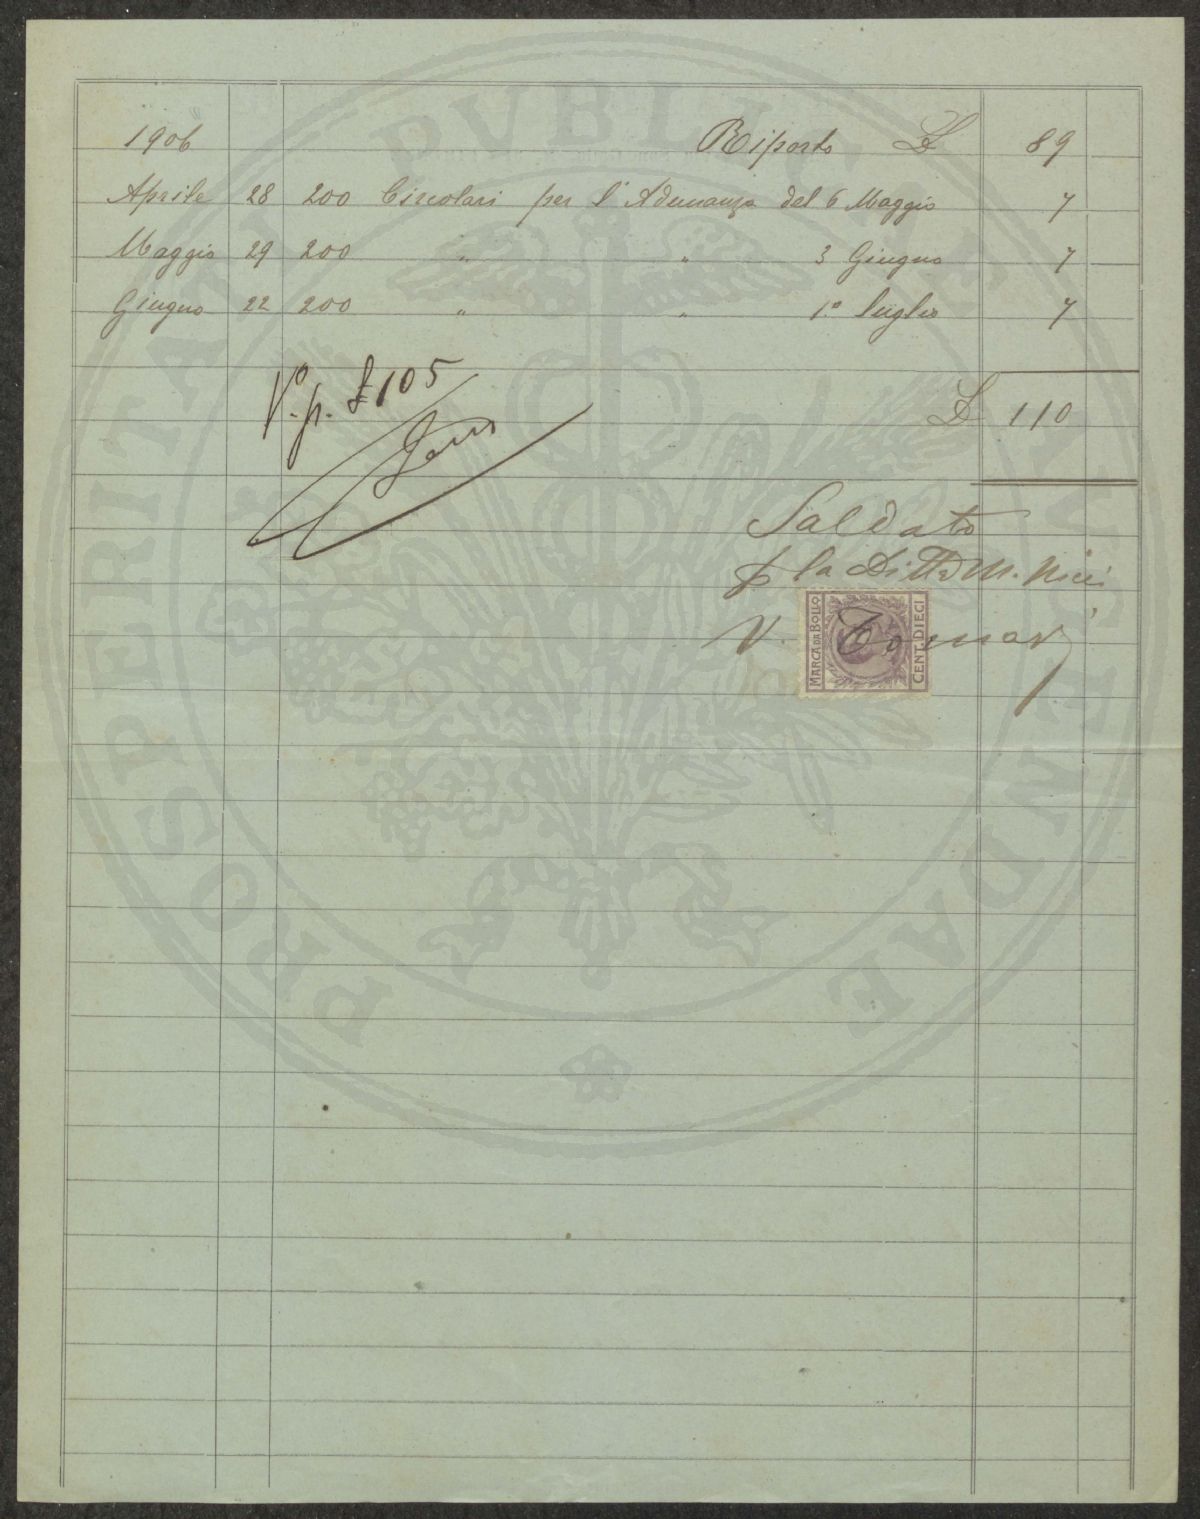 1906 Riporto £ 89
Aprile 28 200 Circolari per l'Adunanza del 6 Maggio 7
Maggio 29 200 " " 3 Giugno 7
Giugno 22 200 " " 1º luglio 7
Vº. p. £ 105
£ 110
Saldato
p la Ditta M. Ricci
V.
MARCA DA BOLLO
CENT. DIECI
PROSPERITATI PVBLICAE AVGENDAE